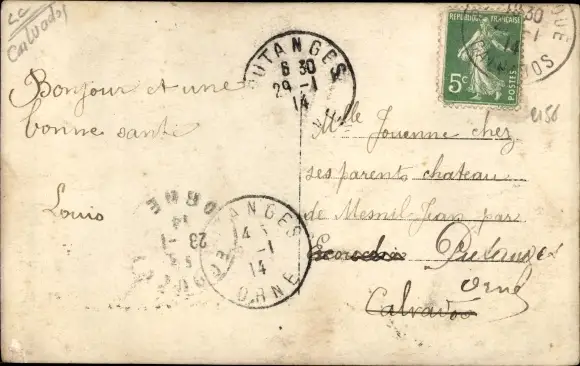 Calvados
Bonjour et une
bonne santé
Louis
PUTANGES
6 30
29 -1
14
REPUBLIQUE FRANÇAISE
5c
POSTES
30
-1
14
2156
Mlle Jouenne chez
ses parents chateau
de Mesnil Jean par
Ecouché Putanges
Orne
Calvados
PUTANGES
4
-1
14
ORNE
ORNE
23
14